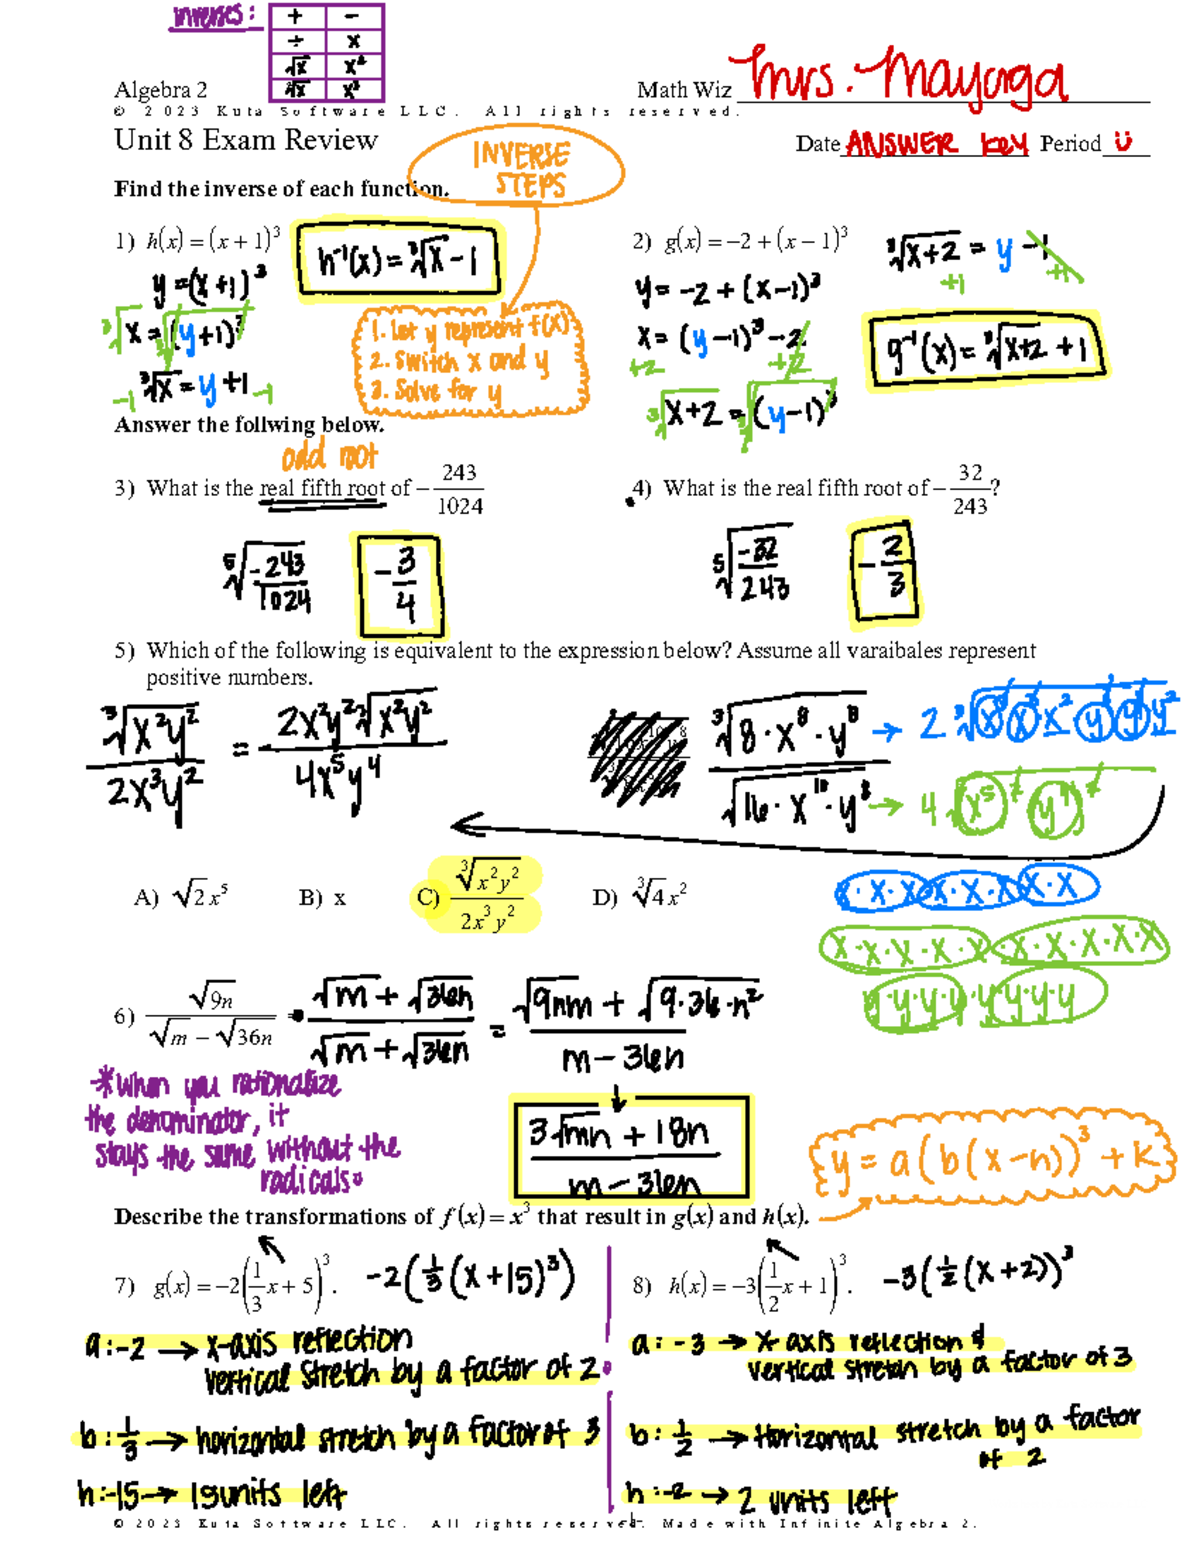 inverses:
+ −
÷ x
√x x²
∛x x³
Algebra 2
Math Wiz Mrs. Mayoga
© 2023 Kuta Software LLC. All rights reserved.
Unit 8 Exam Review
Date ANSWER key Period
INVERSE STEPS
Find the inverse of each function.
1) h(x) = (x + 1)³
h⁻¹(x) = ∛x − 1
y = (x+1)³
∛x = ∛(y+1)³
−1 ∛x = y + 1 −1
1. Let y represent f(x)
2. Switch x and y
3. Solve for y
2) g(x) = −2 + (x − 1)³
y = −2 + (x−1)³
x = (y−1)³ − 2
+2 +2
∛x+2 = ∛(y−1)³
∛x+2 = y − 1
+1 +1
g⁻¹(x) = ∛x+2 + 1
Answer the follwing below.
odd root
3) What is the real fifth root of −243/1024
⁵√−243/1024
−3/4
4) What is the real fifth root of −32/243?
⁵√−32/243
−2/3
5) Which of the following is equivalent to the expression below? Assume all varaibales represent
positive numbers.
∛x²y² / 2x³y² = 2x²y²∛x²y² / 4x⁵y⁴
∛8·x⁸·y⁸ → 2∛x³x³x²y³y³y²
√16·x¹⁰·y⁸ → 4√x⁵² y⁴²
A) √2x⁵ B) x C) ∛x²y² / 2x³y² D) ∛4x²
x·x·x x·x·x x·x
x·x·x·x·x·x·x·x·x·x
y·y·y·y·y·y·y·y
6) √9n / √m − √36n · √m + √36n / √m + √36n = √9nm + √9·36·n² / m − 36n
3√mn + 18n / m − 36n
*When you rationalize
the denominator, it
stays the same without the
radicals.
y = a(b(x−h))³ + k
Describe the transformations of f(x) = x³ that result in g(x) and h(x).
7) g(x) = −2(1/3x + 5)³. −2(1/3(x+15)³)
a: −2 → x-axis reflection
vertical stretch by a factor of 2.
b: 1/3 → horizontal stretch by a factor of 3
h: −15 → 15 units left
8) h(x) = −3(1/2x + 1)³. −3(1/2(x+2))³
a: −3 → x-axis reflection &
vertical stretch by a factor of 3
b: 1/2 → Horizontal stretch by a factor
of 2
h: −2 → 2 units left
© 2023 Kuta Software LLC. All rights reserved. Made with Infinite Algebra 2.